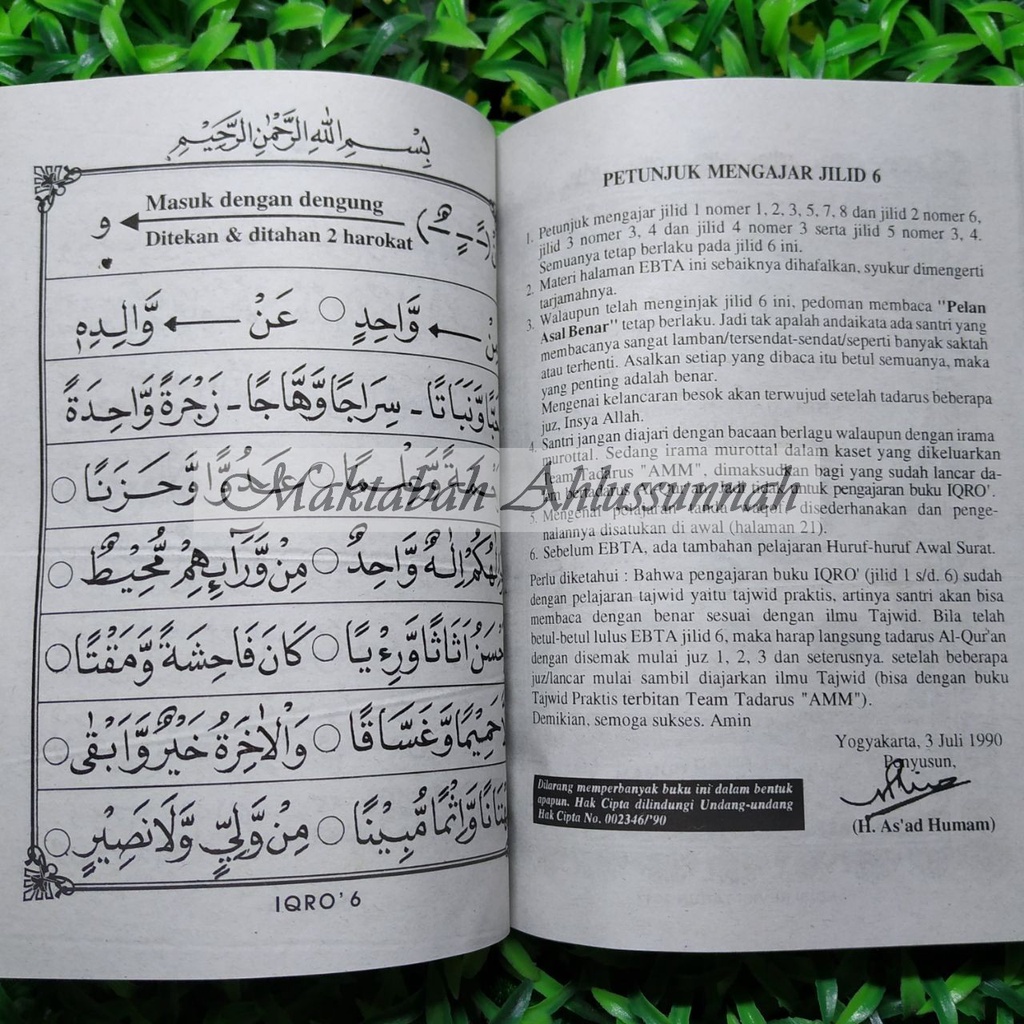 بِسْمِ اللهِ الرَّحْمٰنِ الرَّحِيْمِ
Masuk dengan dengung
Ditekan & ditahan 2 harokat
و
وَّاحِدٍ عَنْ وَّالِدِهٖ
وَّنَبَاتًا - سِرَاجًا وَّهَّاجًا - زَجْرَةٌ وَّاحِدَةٌ
عَدُوًّا وَّحَزَنًا
اِلٰهٌ وَّاحِدٌ مِنْ وَّرَآىِٕهِمْ مُّحِيْطٌ
اَثَاثًا وَّرِءْيًا كَانَ فَاحِشَةً وَّمَقْتًا
حَمِيْمًا وَّغَسَّاقًا وَالْاٰخِرَةُ خَيْرٌ وَّاَبْقٰى
وَّاِثْمًا مُّبِيْنًا مِنْ وَّلِيٍّ وَّلَا نَصِيْرٍ
IQRO' 6
PETUNJUK MENGAJAR JILID 6
1. Petunjuk mengajar jilid 1 nomer 1, 2, 3, 5, 7, 8 dan jilid 2 nomer 6,
jilid 3 nomer 3, 4 dan jilid 4 nomer 3 serta jilid 5 nomer 3, 4.
Semuanya tetap berlaku pada jilid 6 ini.
2. Materi halaman EBTA ini sebaiknya dihafalkan, syukur dimengerti
tarjamahnya.
3. Walaupun telah menginjak jilid 6 ini, pedoman membaca "Pelan
Asal Benar" tetap berlaku. Jadi tak apalah andaikata ada santri yang
membacanya sangat lamban/tersendat-sendat/seperti banyak saktah
atau terhenti. Asalkan setiap yang dibaca itu betul semuanya, maka
yang penting adalah benar.
Mengenai kelancaran besok akan terwujud setelah tadarus beberapa
juz, Insya Allah.
4. Santri jangan diajari dengan bacaan berlagu walaupun dengan irama
murottal. Sedang irama murottal dalam kaset yang dikeluarkan
Team Tadarus "AMM", dimaksudkan bagi yang sudah lancar da-
lam bertadarus untuk pengajaran buku IQRO'.
5. Mengenai pelajaran tanda disederhanakan dan penge-
nalannya disatukan di awal (halaman 21).
6. Sebelum EBTA, ada tambahan pelajaran Huruf-huruf Awal Surat.
Perlu diketahui : Bahwa pengajaran buku IQRO' (jilid 1 s/d. 6) sudah
dengan pelajaran tajwid yaitu tajwid praktis, artinya santri akan bisa
membaca dengan benar sesuai dengan ilmu Tajwid. Bila telah
betul-betul lulus EBTA jilid 6, maka harap langsung tadarus Al-Qur'an
dengan disemak mulai juz 1, 2, 3 dan seterusnya. setelah beberapa
juz/lancar mulai sambil diajarkan ilmu Tajwid (bisa dengan buku
Tajwid Praktis terbitan Team Tadarus "AMM").
Demikian, semoga sukses. Amin
Yogyakarta, 3 Juli 1990
Penyusun,
(H. As'ad Humam)
Dilarang memperbanyak buku ini dalam bentuk
apapun. Hak Cipta dilindungi Undang-undang
Hak Cipta No. 002346/'90
Maktabah Ahlussunnah